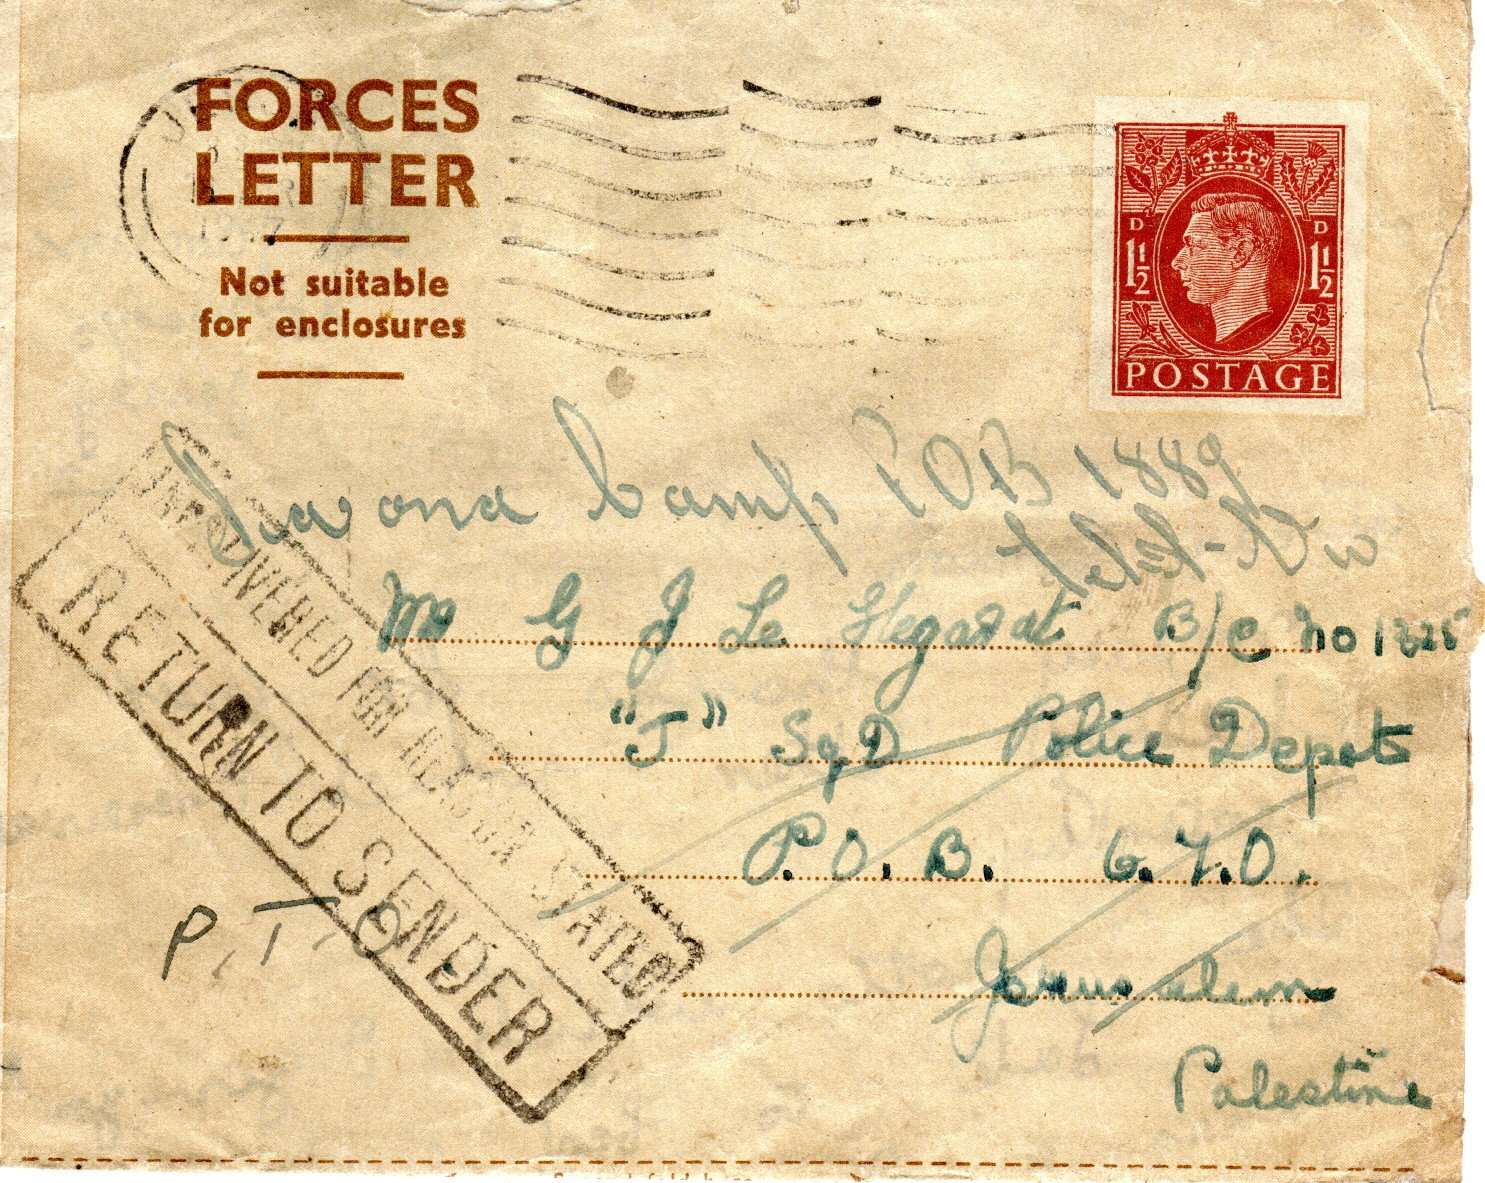 FORCES
LETTER
Not suitable
for enclosures
D D
1½ 1½
POSTAGE
Camp POB 1889
Mr G J Le Hegarat B/C no 1825
"J" Sqd Police Depot
P.O.B.
Jerusalem
Palestine
UNDELIVERED FOR REASON STATED
RETURN TO SENDER
P.T.O